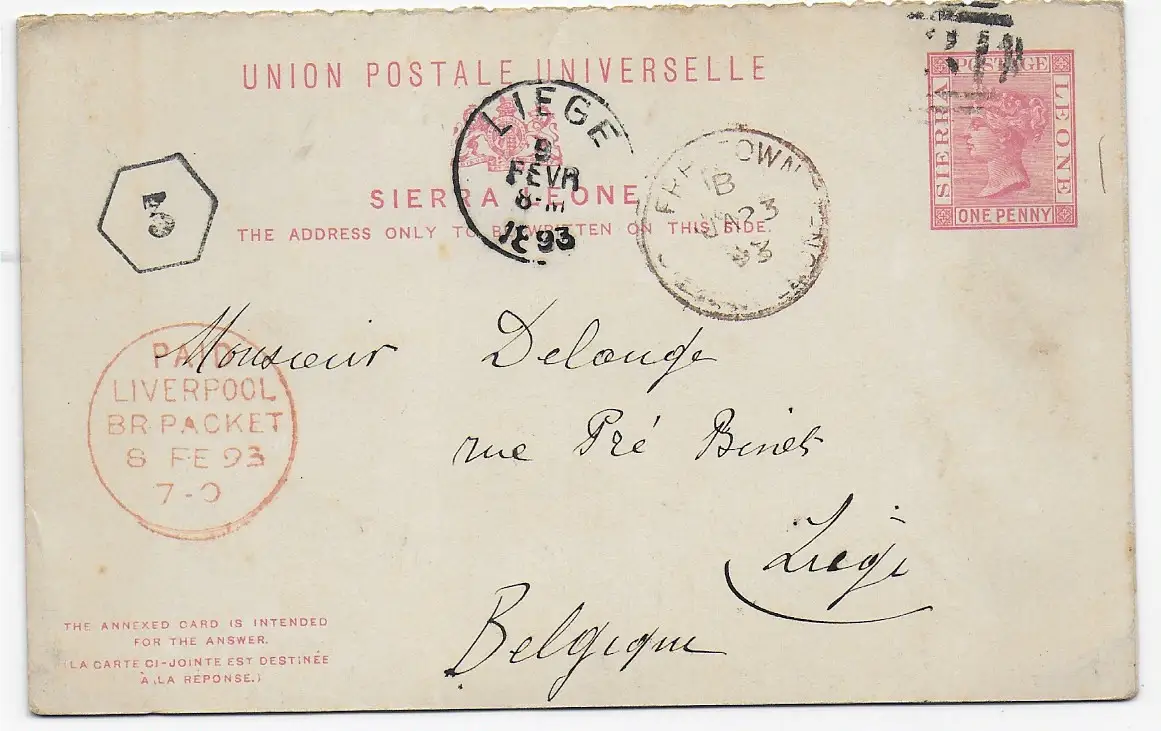 UNION POSTALE UNIVERSELLE
SIERRA LEONE
THE ADDRESS ONLY TO BE WRITTEN ON THIS SIDE.
POSTAGE
SIERRA
LEONE
ONE PENNY
LIEGE
9
FEVR
8-M
1893
FREETOWN
B
JA 23
93
SIERRA LEONE
PAID
LIVERPOOL
BR. PACKET
8 FE 93
7-0
Monsieur Delange
rue Pré Binet
Liège
Belgique
THE ANNEXED CARD IS INTENDED
FOR THE ANSWER.
(LA CARTE CI-JOINTE EST DESTINÉE
À LA RÉPONSE.)